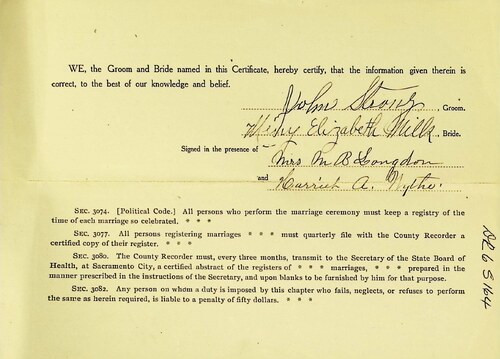 WE, the Groom and Bride named in this Certificate, hereby certify, that the information given therein is
correct, to the best of our knowledge and belief.
John Strong, Groom.
Elizabeth Mills, Bride.
Signed in the presence of Mrs M B Longdon
and Harriet A.
SEC. 3074. [Political Code.] All persons who perform the marriage ceremony must keep a registry of
the time of each marriage so celebrated. * * *
SEC. 3077. All persons registering marriages * * * must quarterly file with the County Recorder a
certified copy of their register. * * *
SEC. 3080. The County Recorder must, every three months, transmit to the Secretary of the State Board of
Health, at Sacramento City, a certified abstract of the registers of * * * marriages, * * * prepared in the
manner prescribed in the instructions of the Secretary, and upon blanks to be furnished by him for that purpose.
SEC. 3082. Any person on whom a duty is imposed by this chapter who fails, neglects, or refuses to perform
the same as herein required, is liable to a penalty of fifty dollars. * * *